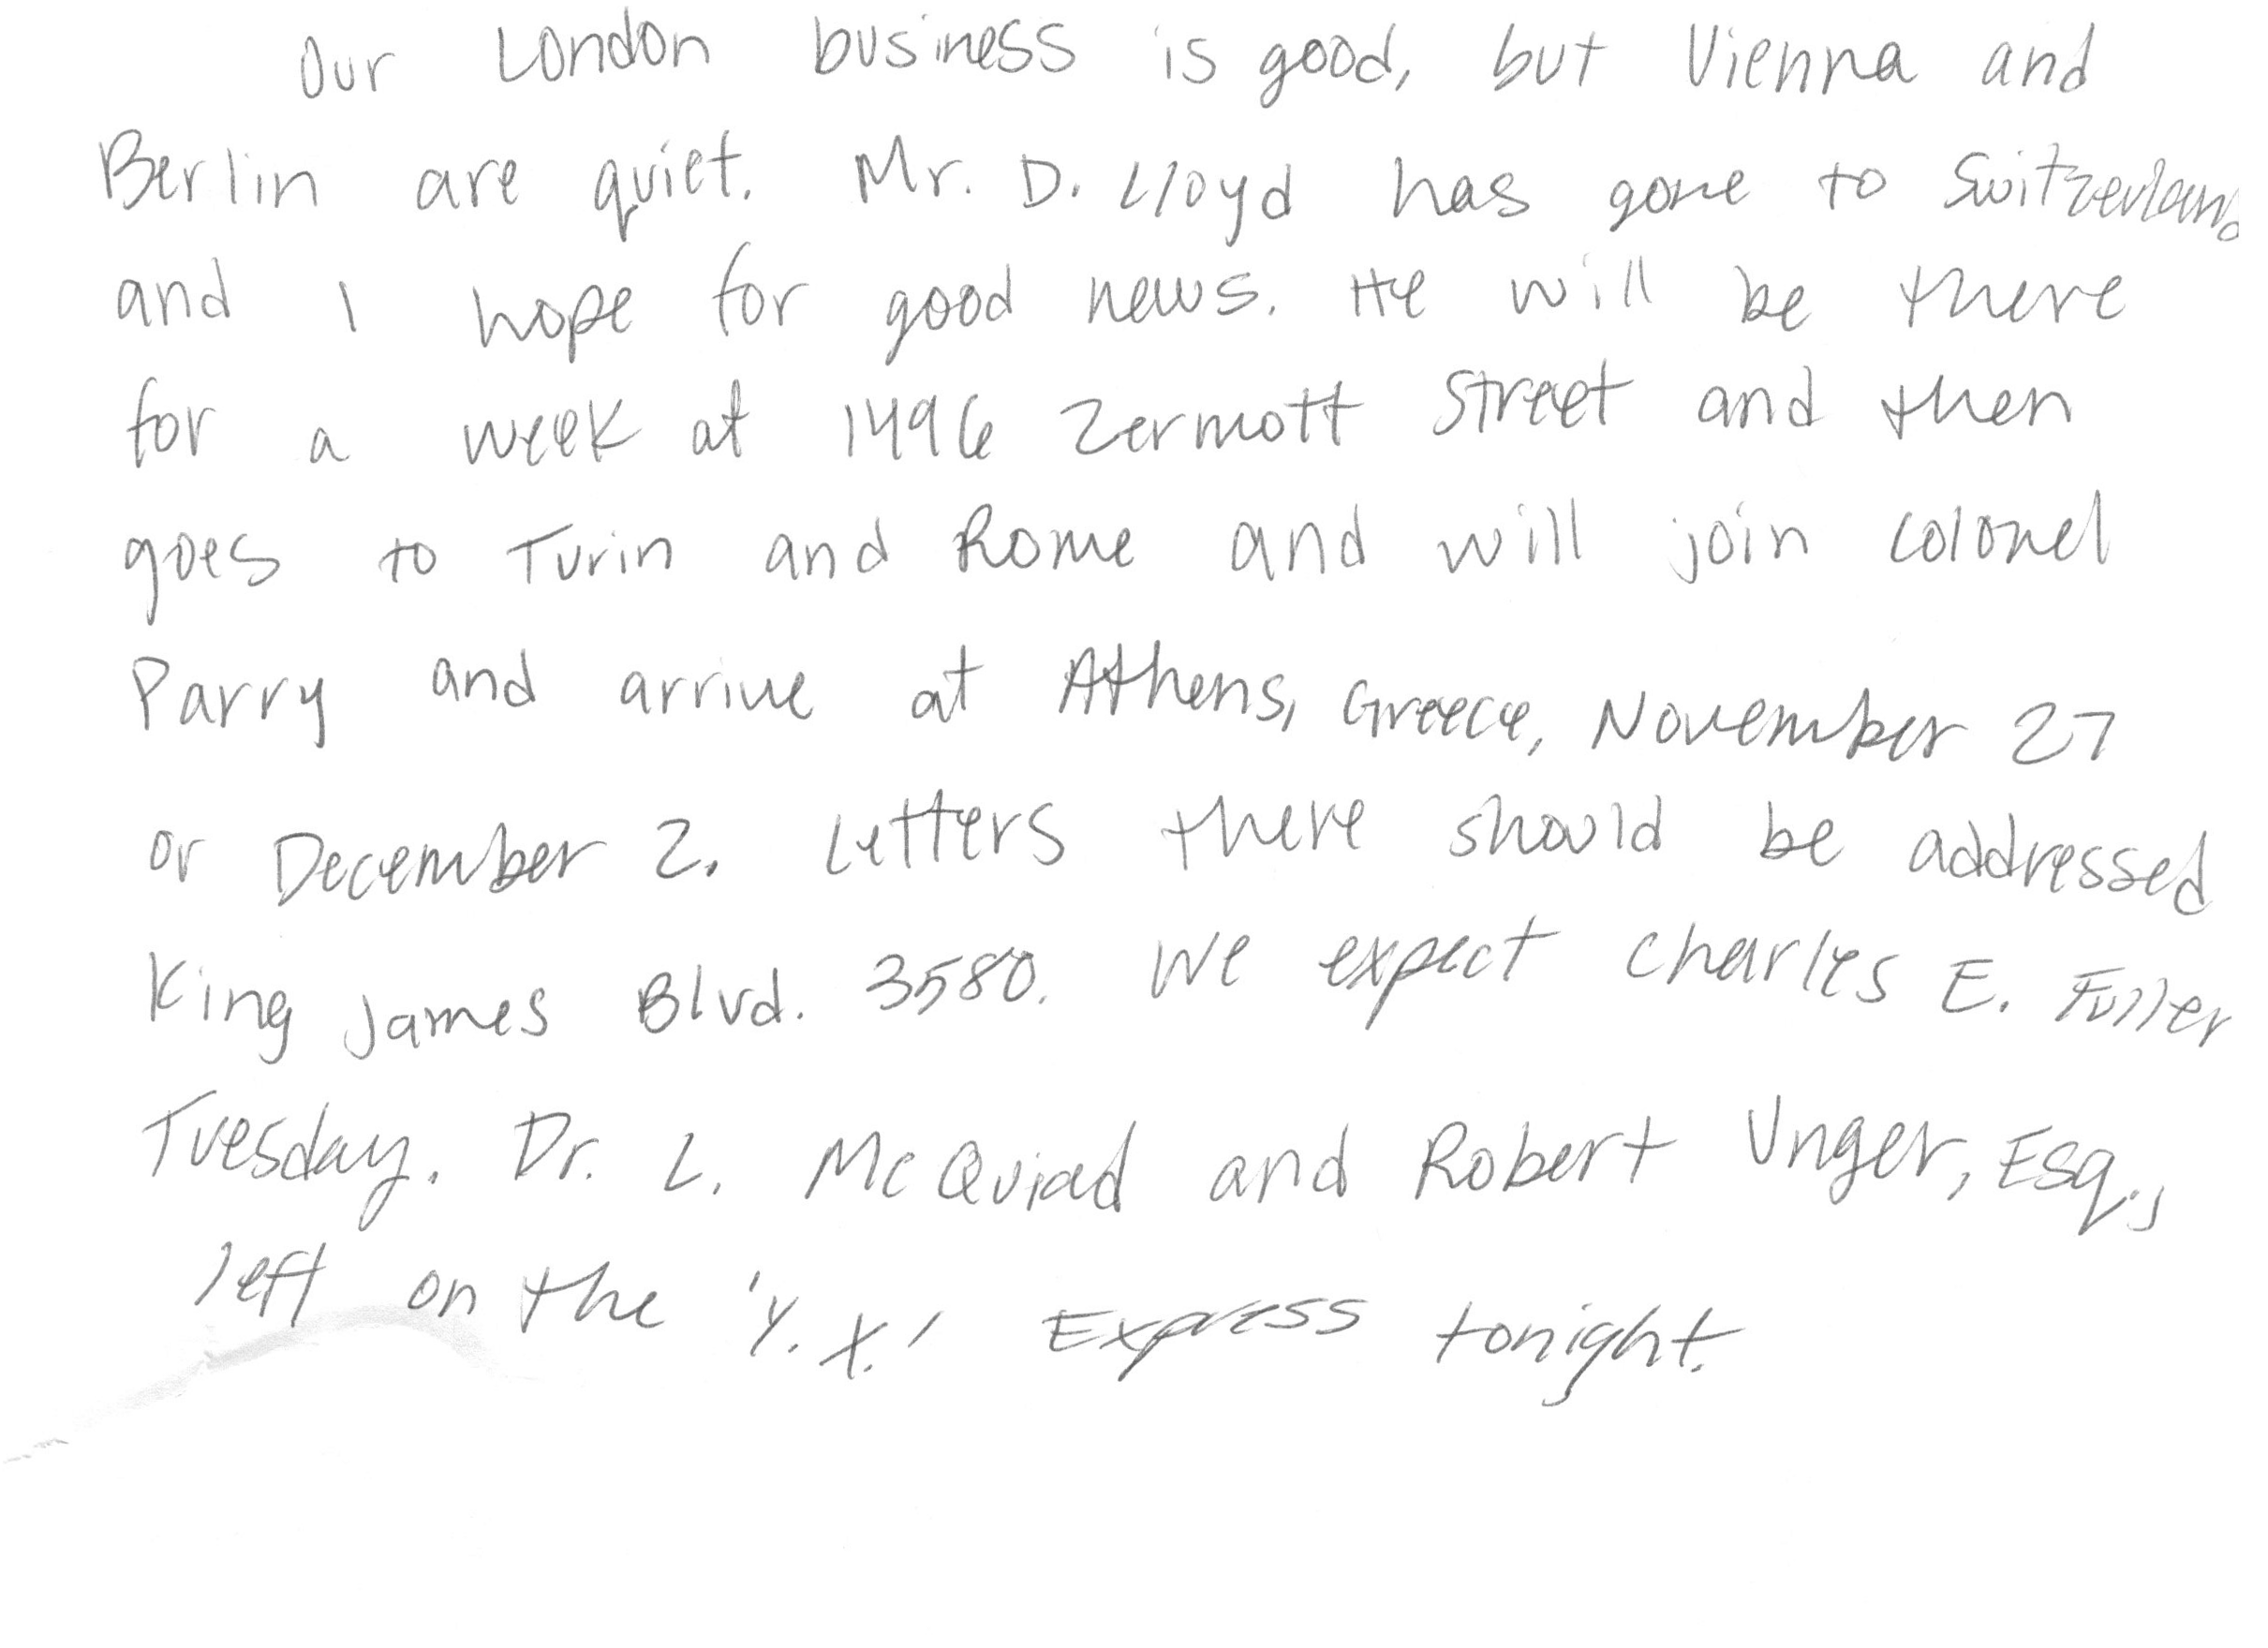 Our London business is good, but Vienna and
Berlin are quiet. Mr. D. Lloyd has gone to Switzerland
and I hope for good news. He will be there
for a week at 1496 Zermott Street and then
goes to Turin and Rome and will join Colonel
Parry and arrive at Athens, Greece, November 27
or December 2. Letters there should be addressed
King James Blvd. 3580. We expect Charles E. Fuller
Tuesday. Dr. L. McQuiad and Robert Unger, Esq.,
left on the 'Y. X.' Express tonight.